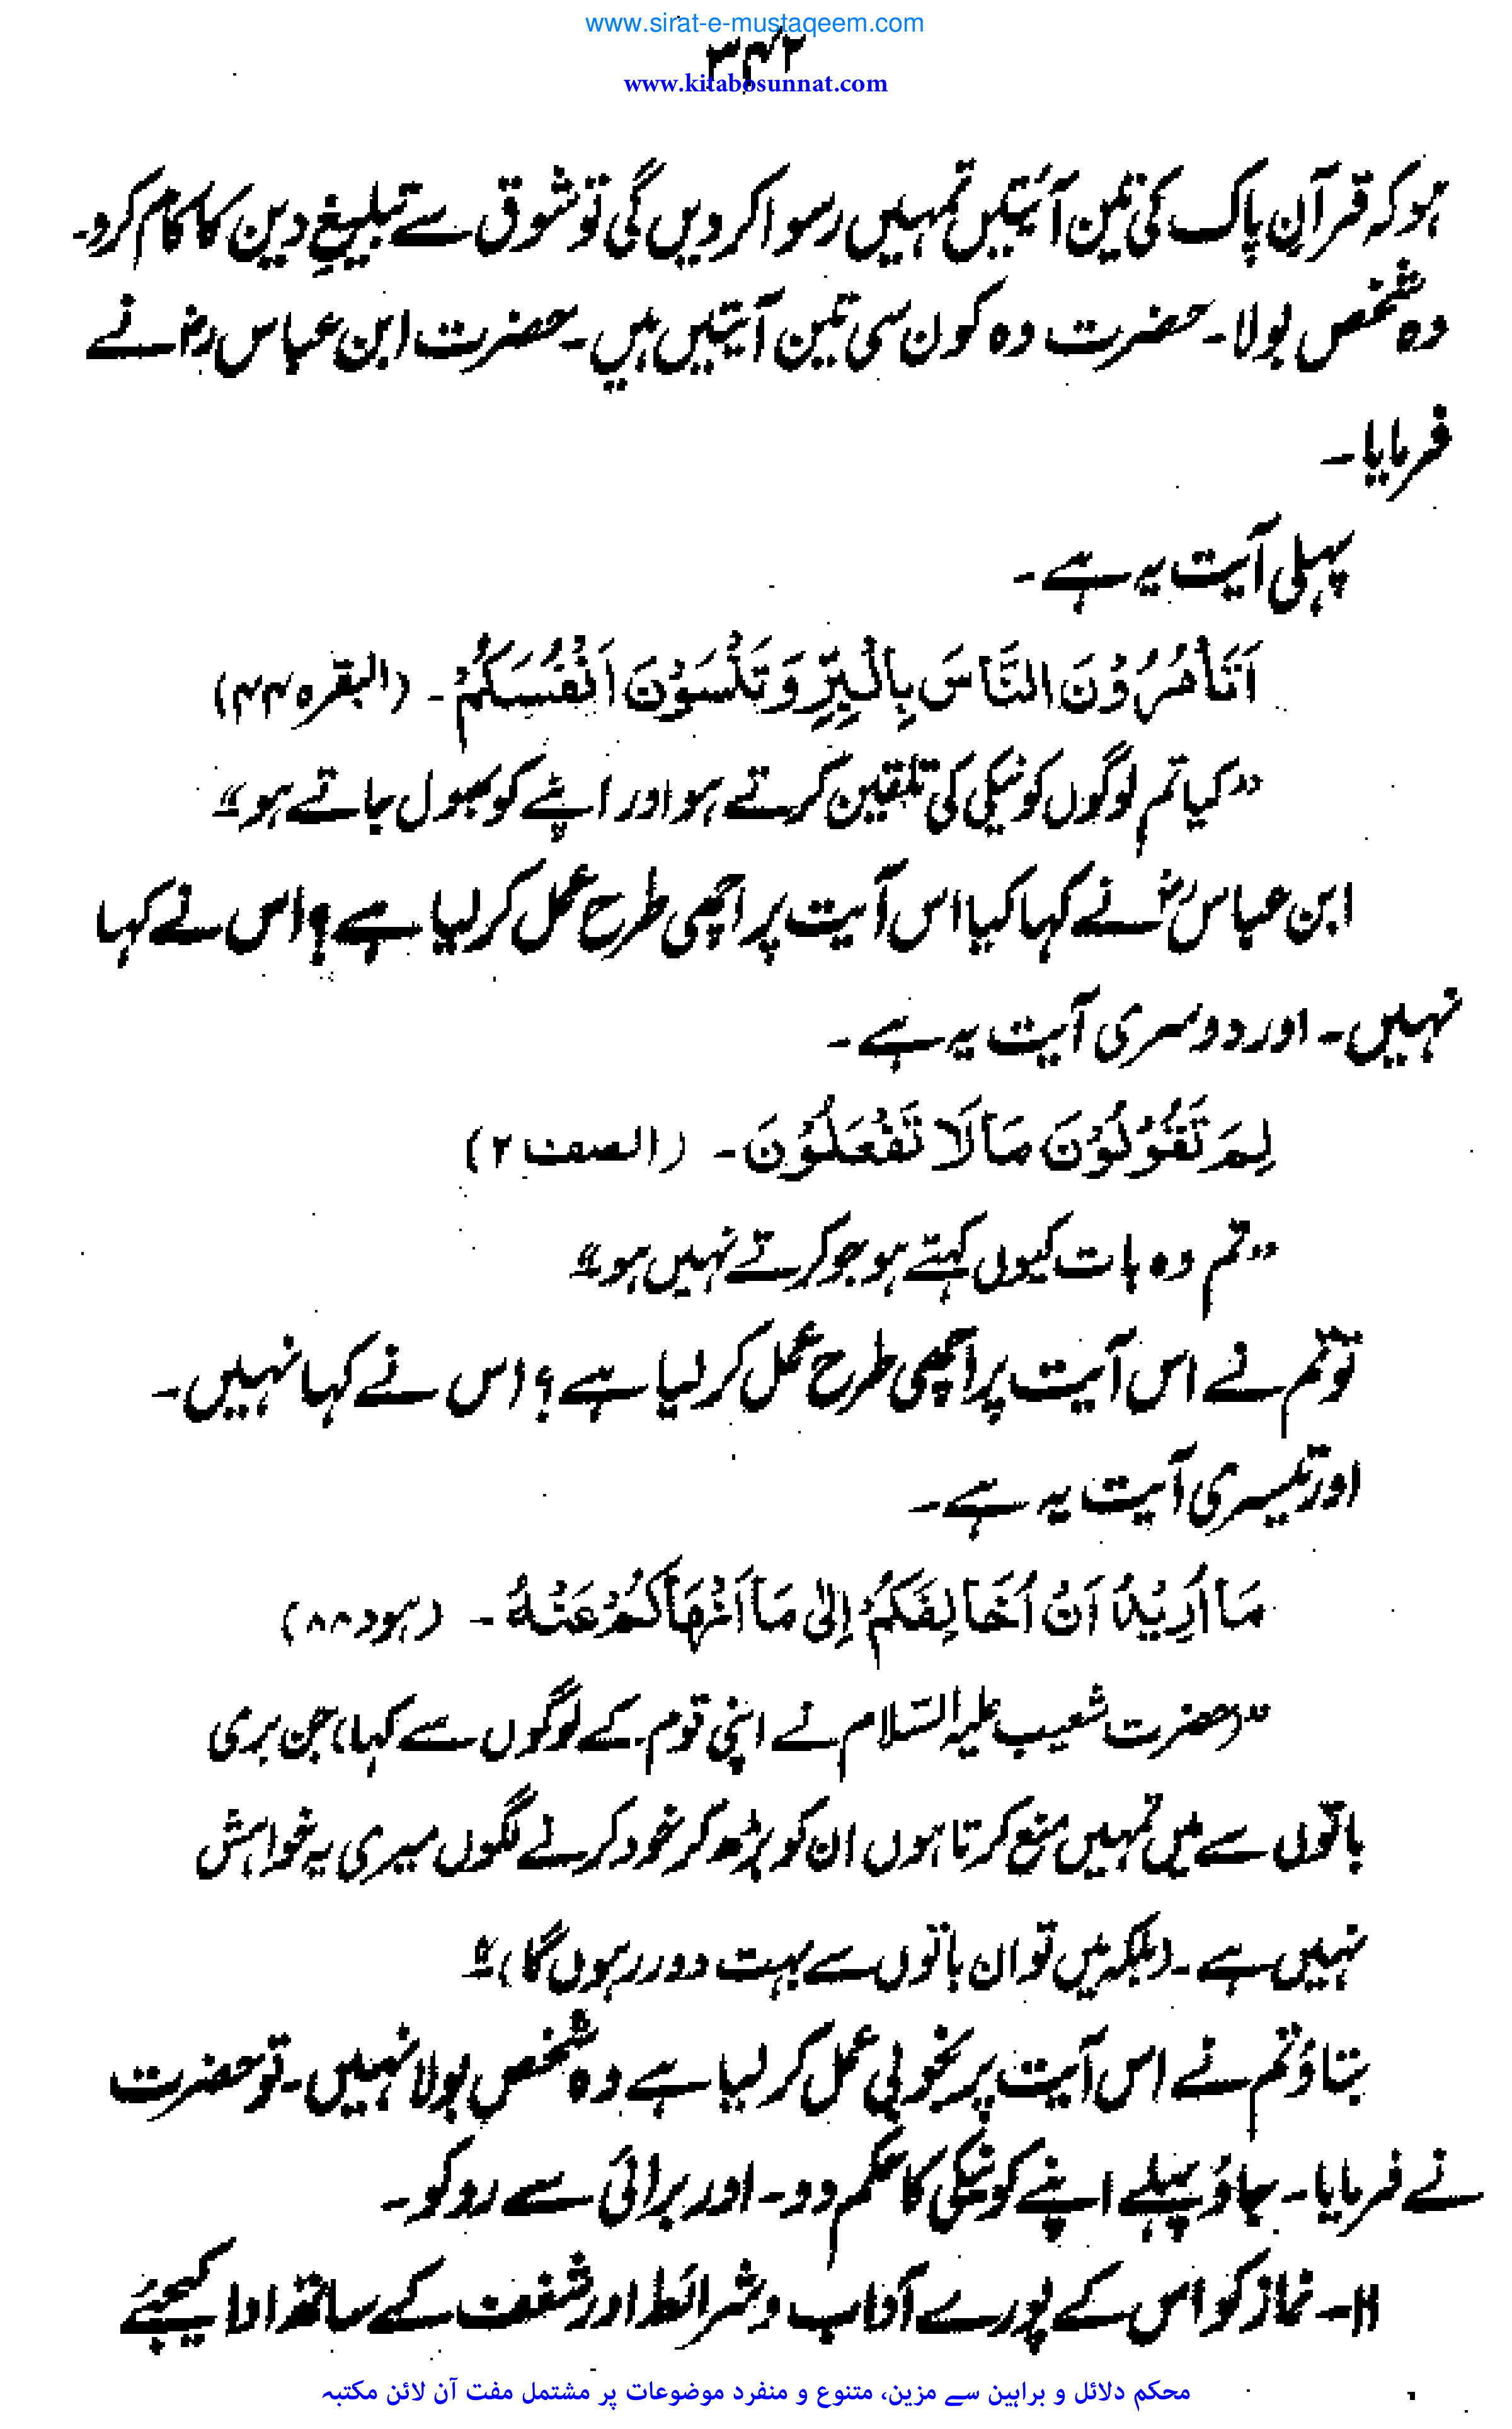 www.sirat-e-mustaqeem.com
۳۴۲
www.kitabosunnat.com
ہو کہ قرآنِ پاک کی تین آیتیں تمہیں رسوا کر دیں گی تو شوق سے تبلیغِ دین کا کام کرو۔
وہ شخص بولا۔ حضرت وہ کون سی تین آیتیں ہیں۔ حضرت ابن عباس رضؓ نے
فرمایا۔
پہلی آیت یہ ہے۔
اَتَأْمُرُوْنَ النَّاسَ بِالْبِرِّ وَتَنْسَوْنَ اَنْفُسَكُمْ۔ (البقرہ ۴۴)
”کیا تم لوگوں کو نیکی کی تلقین کرتے ہو اور اپنے کو بھول جاتے ہو“
ابن عباس رضؓ نے کہا کیا اس آیت پر اچھی طرح عمل کر لیا ہے؟ اس نے کہا
نہیں۔ اور دوسری آیت یہ ہے۔
لِمَ تَقُوْلُوْنَ مَا لَا تَفْعَلُوْنَ۔ (الصف ۲)
”تم وہ بات کیوں کہتے ہو جو کرتے نہیں ہو“
تو تم نے اس آیت پر اچھی طرح عمل کر لیا ہے؟ اس نے کہا نہیں۔
اور تیسری آیت یہ ہے۔
مَا اُرِيْدُ اَنْ اُخَالِفَكُمْ اِلٰى مَا اَنْهَاكُمْ عَنْهُ۔ (ہود ۸۸)
”(حضرت شعیب علیہ السّلام نے اپنی قوم کے لوگوں سے کہا) جن بری
باتوں سے میں تمہیں منع کرتا ہوں ان کو بڑھ کر خود کرنے لگوں میری یہ خواہش
نہیں ہے۔ (بلکہ میں تو ان باتوں سے بہت دور رہوں گا)“
بتاؤ تم نے اس آیت پر بخوبی عمل کر لیا ہے وہ شخص بولا نہیں۔ تو حضرت
نے فرمایا۔ جاؤ پہلے اپنے کو نیکی کا حکم دو۔ اور برائی سے روکو۔
۱۱۔ نماز کو اس کے پورے آداب و شرائط اور شغف کے ساتھ ادا کیجئے
محکم دلائل و براہین سے مزین، متنوع و منفرد موضوعات پر مشتمل مفت آن لائن مکتبہ